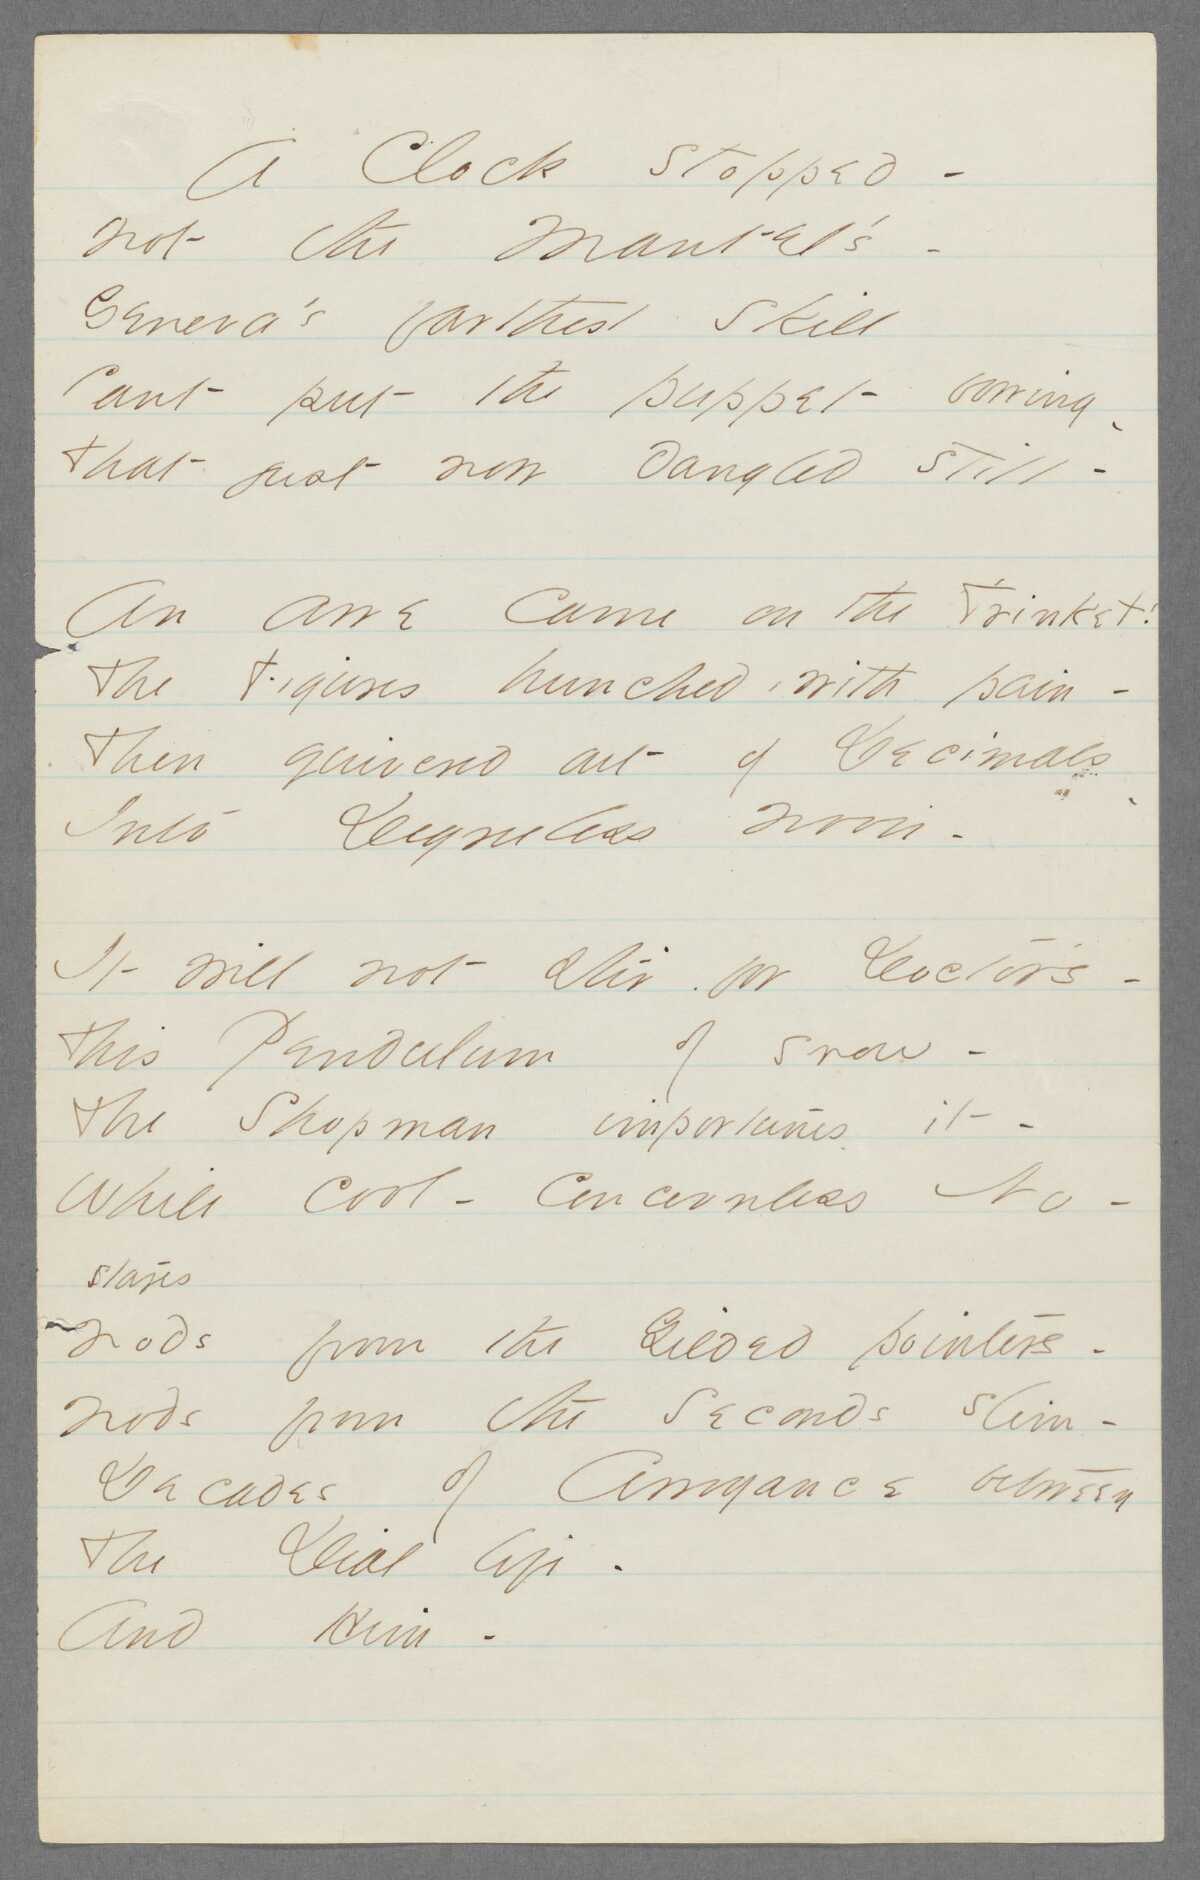 A Clock stopped -
not the Mantel's -
Geneva's farthest skill
Cant put the puppet bowing
that just now dangled still -
An awe came on the Trinket!
The Figures hunched, with pain -
Then quivered out of Decimals
Into Degreeless noon -
It will not stir for Doctor's -
This Pendulum of snow -
The Shopman importunes it -
While cool - concernless No -
stares
nods from the Gilded pointers -
nods from the Seconds slim -
Decades of Arrogance between
The Dial life -
And Him -